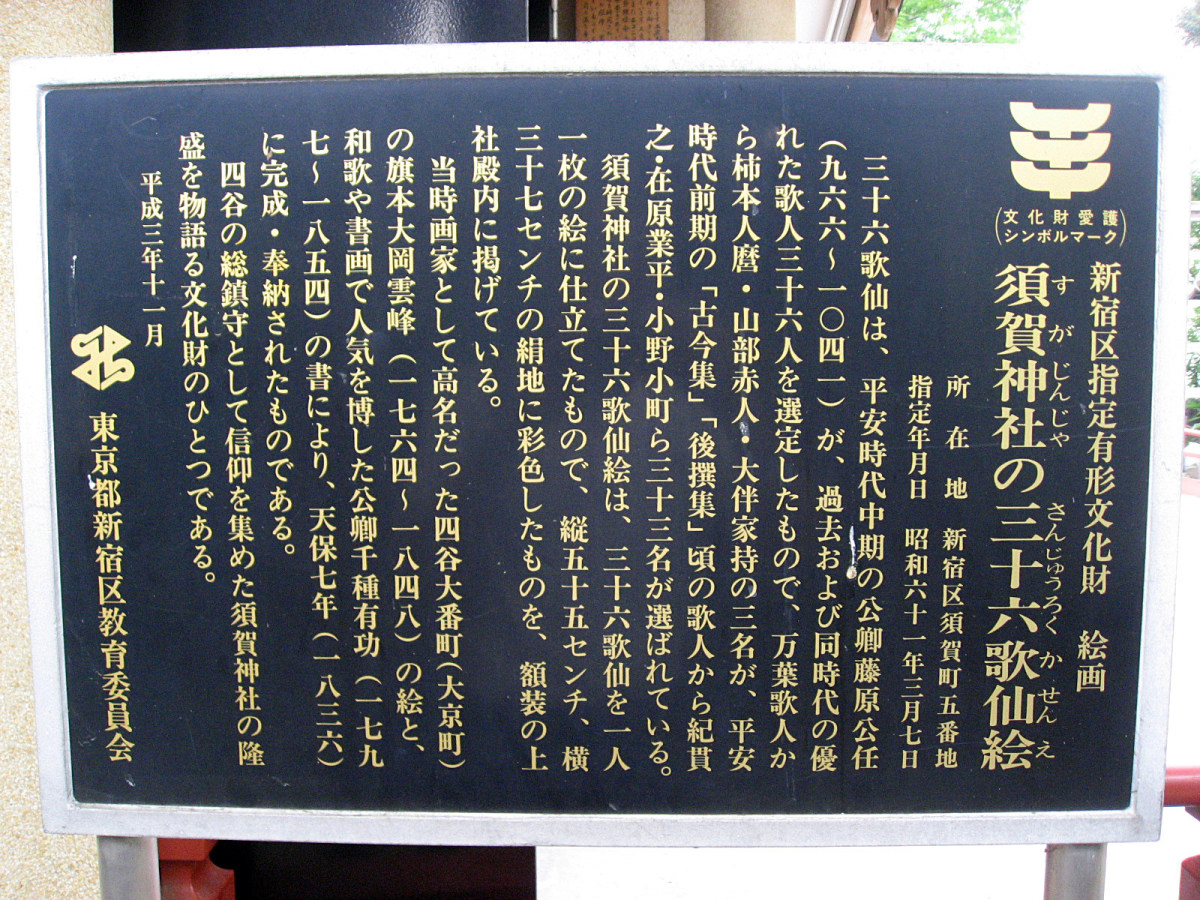 (文化財愛護
シンボルマーク)
新宿区指定有形文化財　絵画
すがじんじゃ　さんじゅうろくかせんえ
須賀神社の三十六歌仙絵
所在地　新宿区須賀町五番地
指定年月日　昭和六十一年三月七日
三十六歌仙は、平安時代中期の公卿藤原公任
(九六六～一〇四一)が、過去および同時代の優
れた歌人三十六人を選定したもので、万葉歌人か
ら柿本人麿・山部赤人・大伴家持の三名が、平安
時代前期の「古今集」「後撰集」頃の歌人から紀貫
之・在原業平・小野小町ら三十三名が選ばれている。
須賀神社の三十六歌仙絵は、三十六歌仙を一人
一枚の絵に仕立てたもので、縦五十五センチ、横
三十七センチの絹地に彩色したものを、額装の上
社殿内に掲げている。
当時画家として高名だった四谷大番町(大京町)
の旗本大岡雲峰(一七六四～一八四八)の絵と、
和歌や書画で人気を博した公卿千種有功(一七九
七～一八五四)の書により、天保七年(一八三六)
に完成・奉納されたものである。
四谷の総鎮守として信仰を集めた須賀神社の隆
盛を物語る文化財のひとつである。
平成三年十一月
東京都新宿区教育委員会